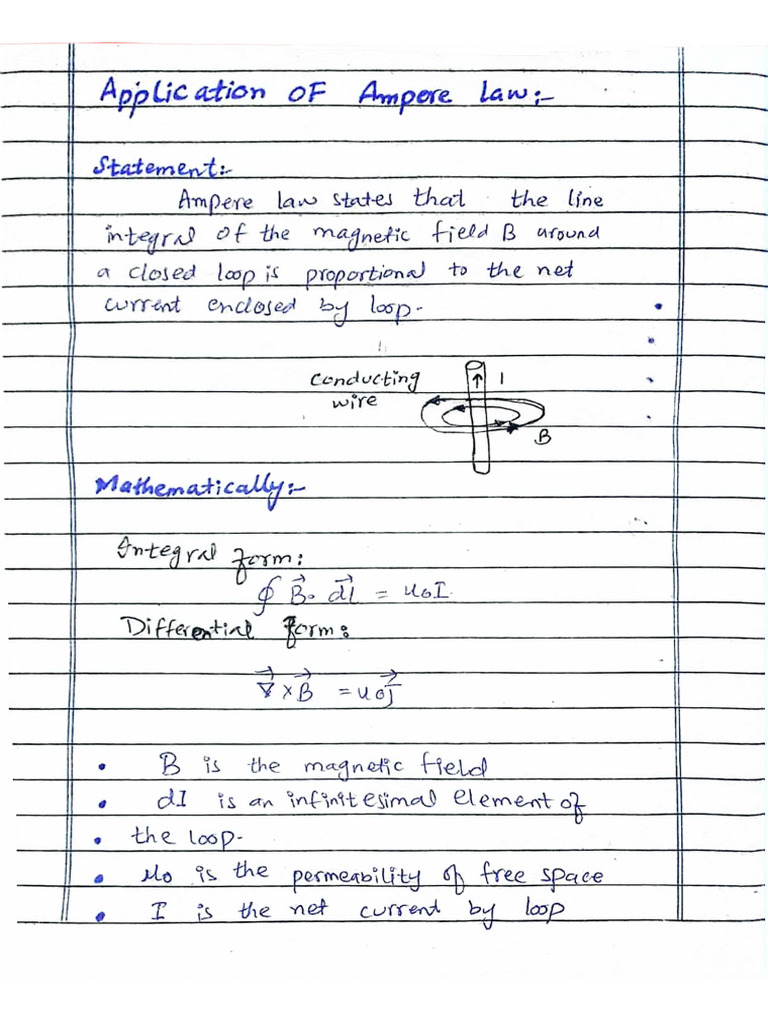 Application OF Ampere Law:-
Statement:-
Ampere law states that the line
integral of the magnetic field B around
a closed loop is proportional to the net
current enclosed by loop.
conducting
wire
I
B
Mathematically:-
Integral form:
∮ B⃗. dl⃗ = u₀I
Differential form:
∇⃗ × B⃗ = u₀J⃗
• B is the magnetic field
• dI is an infinitesimal element of
• the loop.
• Mo is the permeability of free space
• I is the net current by loop